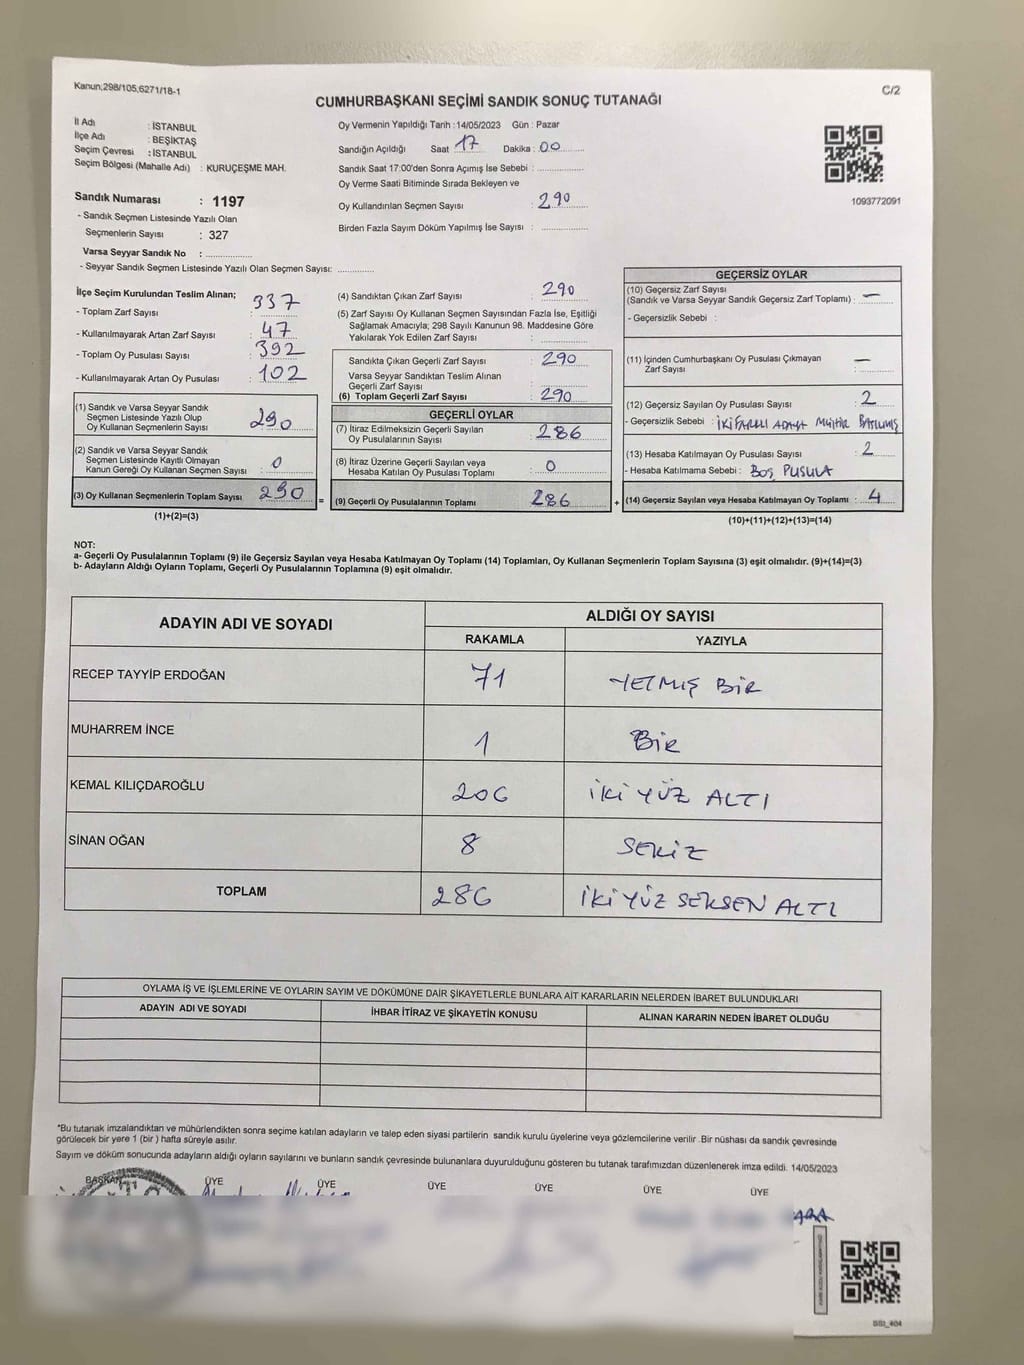 Kanun;298/105,6271/18-1
C/2
CUMHURBAŞKANI SEÇİMİ SANDIK SONUÇ TUTANAĞI
İl Adı : İSTANBUL
İlçe Adı : BEŞİKTAŞ
Seçim Çevresi : İSTANBUL
Seçim Bölgesi (Mahalle Adı) : KURUÇEŞME MAH.
Sandık Numarası : 1197
- Sandık Seçmen Listesinde Yazılı Olan
Seçmenlerin Sayısı : 327
Varsa Seyyar Sandık No : ................
- Seyyar Sandık Seçmen Listesinde Yazılı Olan Seçmen Sayısı: .............
Oy Vermenin Yapıldığı Tarih : 14/05/2023 Gün : Pazar
Sandığın Açıldığı Saat 17 Dakika : 00
Sandık Saat 17:00'den Sonra Açımış İse Sebebi : ................
Oy Verme Saati Bitiminde Sırada Bekleyen ve
Oy Kullandırılan Seçmen Sayısı : 290
Birden Fazla Sayım Döküm Yapılmış İse Sayısı : ................
1093772091
İlçe Seçim Kurulundan Teslim Alınan;
- Toplam Zarf Sayısı : 337
- Kullanılmayarak Artan Zarf Sayısı : 47
- Toplam Oy Pusulası Sayısı : 392
- Kullanılmayarak Artan Oy Pusulası : 102
(1) Sandık ve Varsa Seyyar Sandık
Seçmen Listesinde Yazılı Olup
Oy Kullanan Seçmenlerin Sayısı : 290
(2) Sandık ve Varsa Seyyar Sandık
Seçmen Listesinde Kayıtlı Olmayan
Kanun Gereği Oy Kullanan Seçmen Sayısı : 0
(3) Oy Kullanan Seçmenlerin Toplam Sayısı : 290
(1)+(2)=(3)
(4) Sandıktan Çıkan Zarf Sayısı : 290
(5) Zarf Sayısı Oy Kullanan Seçmen Sayısından Fazla İse, Eşitliği
Sağlamak Amacıyla; 298 Sayılı Kanunun 98. Maddesine Göre
Yakılarak Yok Edilen Zarf Sayısı : ................
Sandıkta Çıkan Geçerli Zarf Sayısı : 290
Varsa Seyyar Sandıktan Teslim Alınan
Geçerli Zarf Sayısı : ................
(6) Toplam Geçerli Zarf Sayısı : 290
GEÇERLİ OYLAR
(7) İtiraz Edilmeksizin Geçerli Sayılan
Oy Pusulalarının Sayısı : 286
(8) İtiraz Üzerine Geçerli Sayılan veya
Hesaba Katılan Oy Pusulası Toplamı : 0
= (9) Geçerli Oy Pusulalarının Toplamı : 286
GEÇERSİZ OYLAR
(10) Geçersiz Zarf Sayısı
(Sandık ve Varsa Seyyar Sandık Geçersiz Zarf Toplamı) : —
- Geçersizlik Sebebi :
(11) İçinden Cumhurbaşkanı Oy Pusulası Çıkmayan
Zarf Sayısı : —
(12) Geçersiz Sayılan Oy Pusulası Sayısı : 2
- Geçersizlik Sebebi : İKİ FARKLI ADAYA MÜHÜR BASILMIŞ
(13) Hesaba Katılmayan Oy Pusulası Sayısı : 2
- Hesaba Katılmama Sebebi : BOŞ PUSULA
+ (14) Geçersiz Sayılan veya Hesaba Katılmayan Oy Toplamı : 4
(10)+(11)+(12)+(13)=(14)
NOT:
a- Geçerli Oy Pusulalarının Toplamı (9) ile Geçersiz Sayılan veya Hesaba Katılmayan Oy Toplamı (14) Toplamları, Oy Kullanan Seçmenlerin Toplam Sayısına (3) eşit olmalıdır. (9)+(14)=(3)
b- Adayların Aldığı Oyların Toplamı, Geçerli Oy Pusulalarının Toplamına (9) eşit olmalıdır.
ADAYIN ADI VE SOYADI
ALDIĞI OY SAYISI
RAKAMLA YAZIYLA
RECEP TAYYİP ERDOĞAN 71 YETMİŞ BİR
MUHARREM İNCE 1 BİR
KEMAL KILIÇDAROĞLU 206 İKİ YÜZ ALTI
SİNAN OĞAN 8 SEKİZ
TOPLAM 286 İKİ YÜZ SEKSEN ALTI
OYLAMA İŞ VE İŞLEMLERİNE VE OYLARIN SAYIM VE DÖKÜMÜNE DAİR ŞİKAYETLERLE BUNLARA AİT KARARLARIN NELERDEN İBARET BULUNDUKLARI
ADAYIN ADI VE SOYADI İHBAR İTİRAZ VE ŞİKAYETİN KONUSU ALINAN KARARIN NEDEN İBARET OLDUĞU
*Bu tutanak imzalandıktan ve mühürlendikten sonra seçime katılan adayların ve talep eden siyasi partilerin sandık kurulu üyelerine veya gözlemcilerine verilir .Bir nüshası da sandık çevresinde
görülecek bir yere 1 (bir ) hafta süreyle asılır.
Sayım ve döküm sonucunda adayların aldığı oyların sayılarını ve bunların sandık çevresinde bulunanlara duyurulduğunu gösteren bu tutanak tarafımızdan düzenlenerek imza edildi. 14/05/2023
BAŞKAN ÜYE ÜYE ÜYE ÜYE ÜYE ÜYE